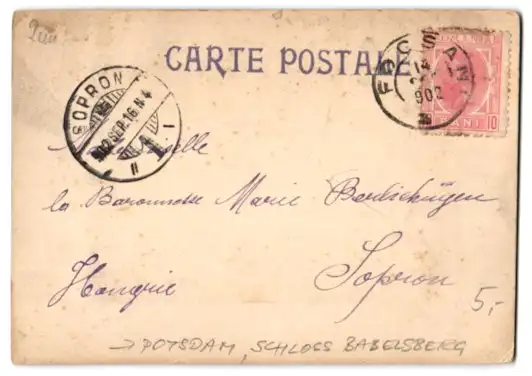 CARTE POSTALE
SOPRON
902 SEP. 16 N 4
FOCSANI
902
ROMANIA
10
BANI
la Baronnesse Marie Berlichingen
Sopron
Hongrie
5,-
→ POTSDAM, SCHLOSS BABELSBERG